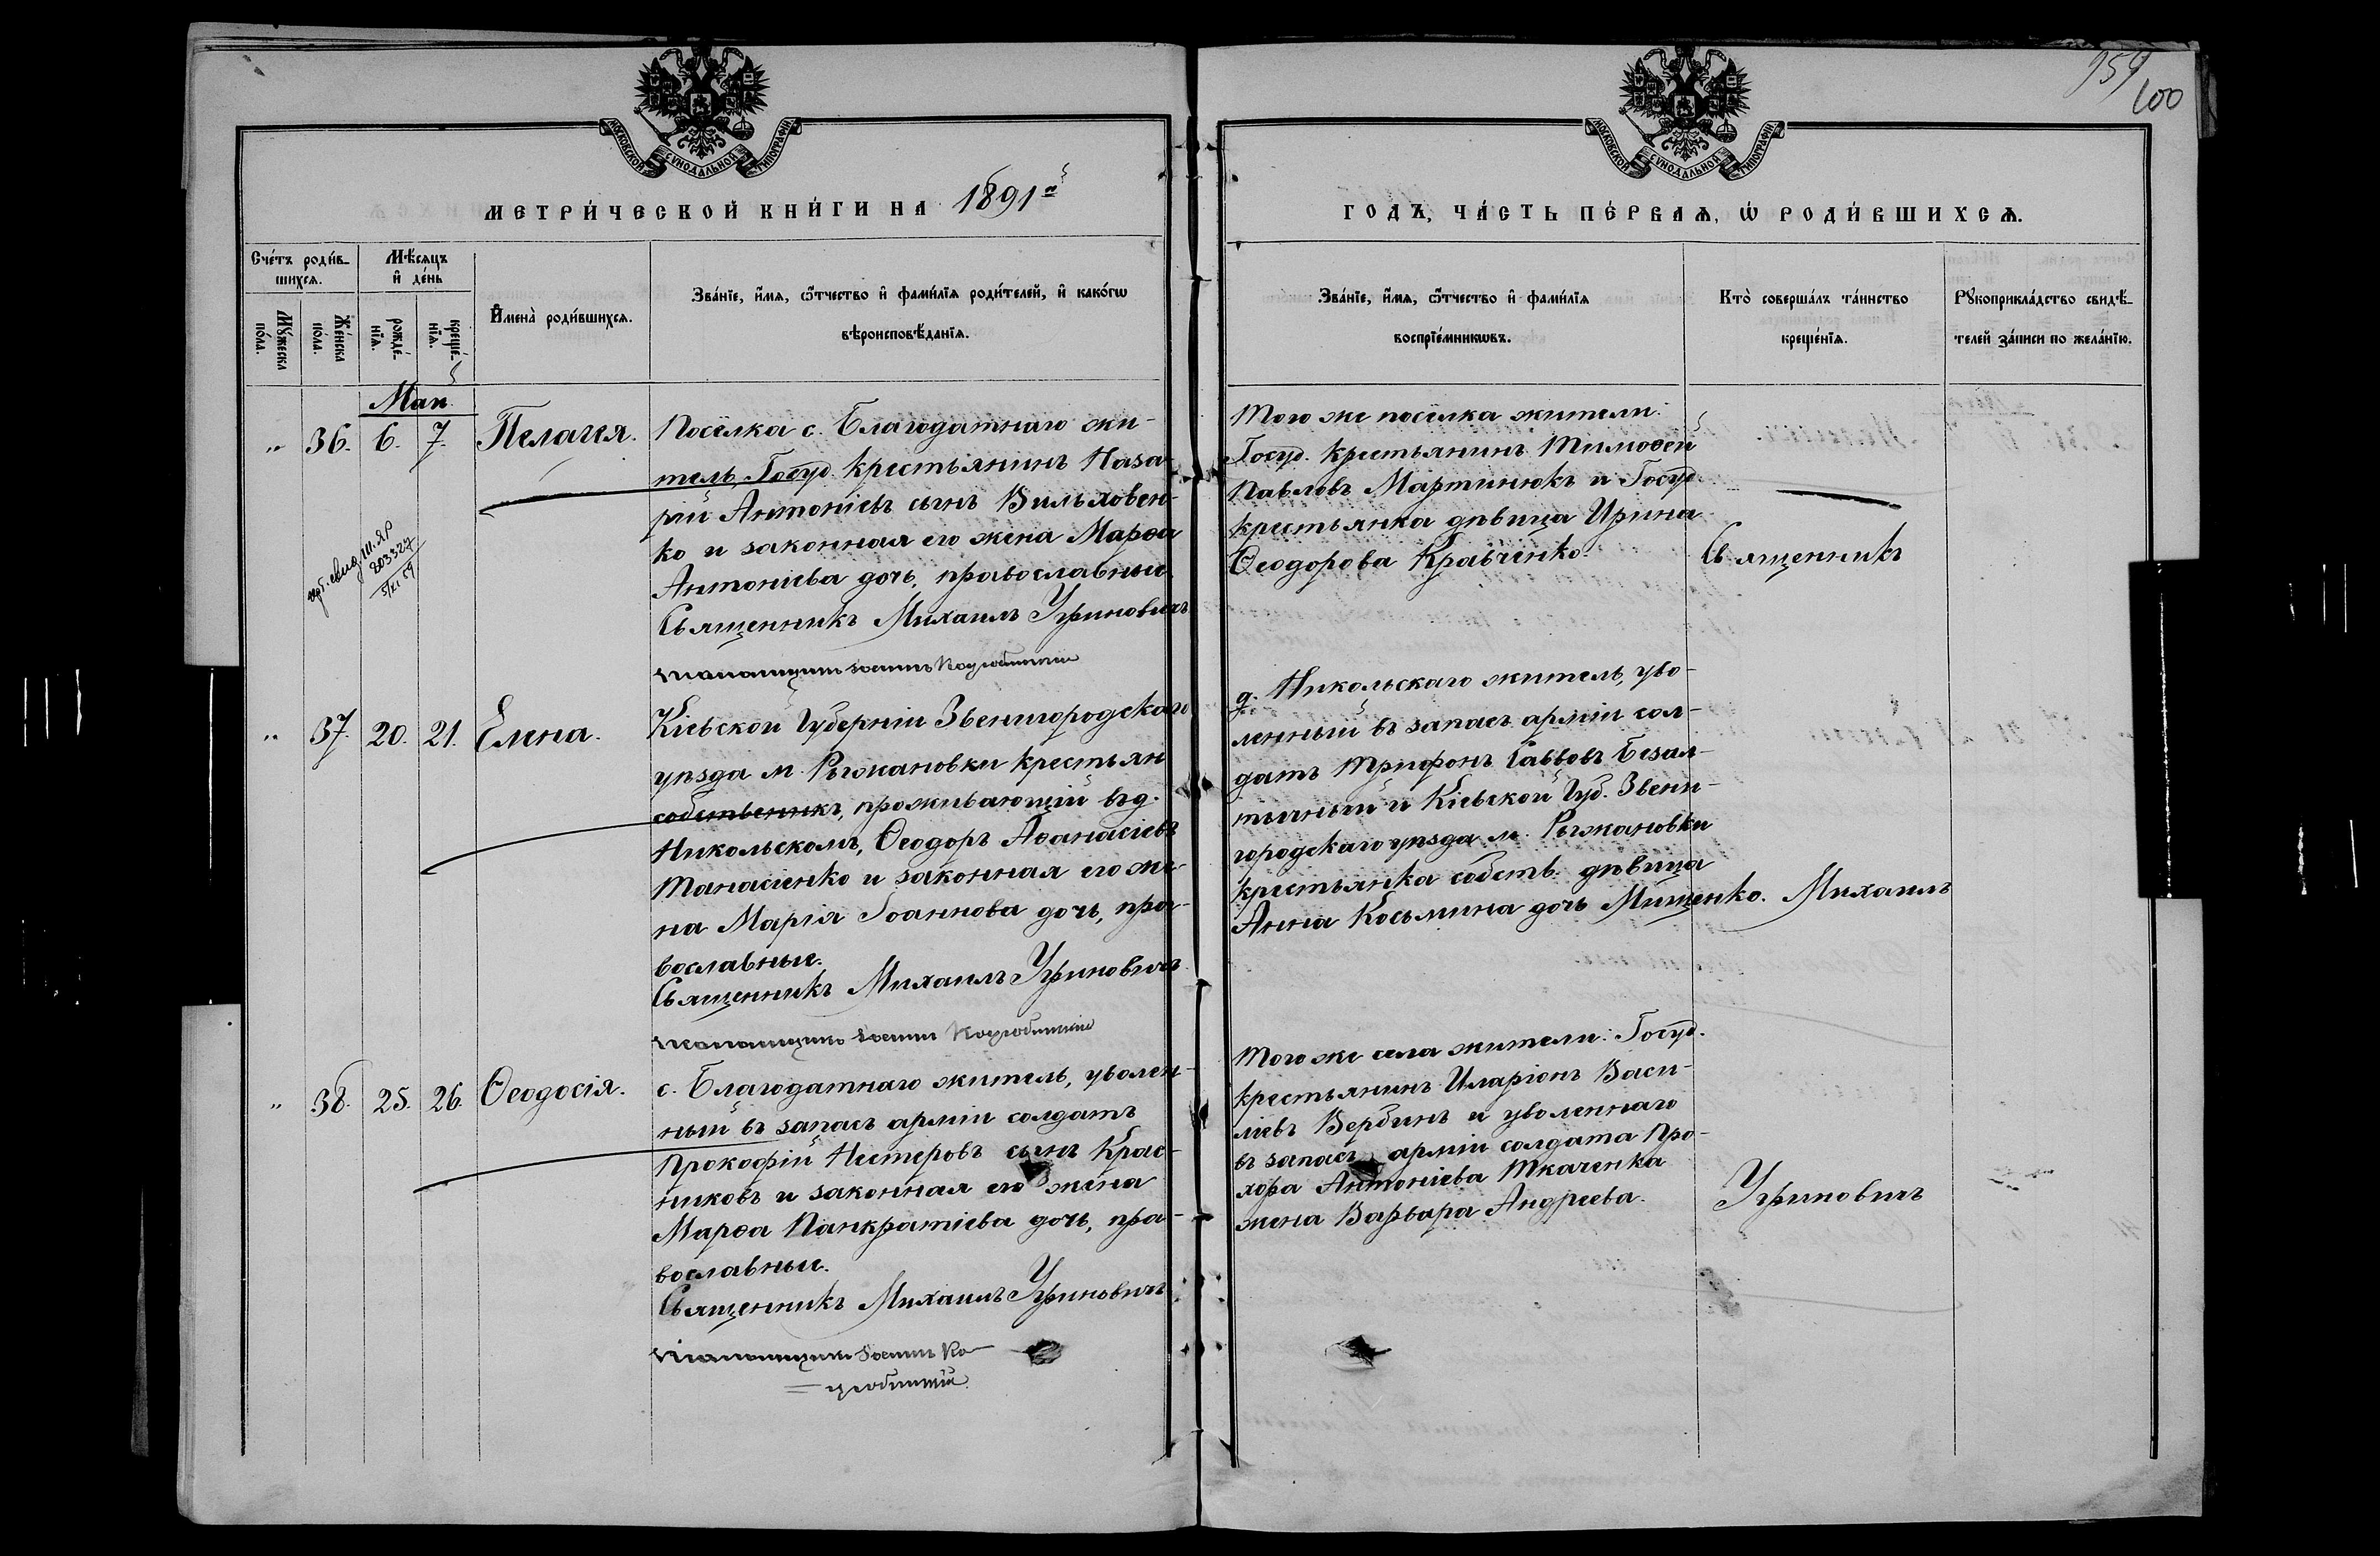 954
100
МОСКОВСКОЙ СѴНОДАЛЬНОЙ ТИПОГРАФІИ
МОСКОВСКОЙ СѴНОДАЛЬНОЙ ТИПОГРАФІИ
МЕТРИ́ЧЕСКОЙ КНИ́ГИ НА 1891й
ГОДЪ, ЧА́СТЬ ПЕ́РВАѦ, Ѡ҆ РОДИ́ВШИХСѦ.
Сче́тъ роди́в-
шихсѧ.
Мꙋ́жеска
по́ла.
Же́нска
по́ла.
Мѣ́сѧцъ
и҆ де́нь
рожде́-
нїѧ.
креще́-
нїѧ.
И҆мена̀ роди́вшихсѧ.
Зва́нїе, и҆́мѧ, ѻ҆́тчество и҆ фами́лїѧ роди́телей, и҆ како́гѡ
вѣроисповѣ́данїѧ.
Зва́нїе, и҆́мѧ, ѻ҆́тчество и҆ фами́лїѧ
воспрїе́мникѡвъ.
Кто̀ соверша́лъ та́инство
креще́нїѧ.
Рꙋкоприкла́дство свидѣ́-
телей за́писи по жела́нїю.
Маи
" 36. 6. 7. Пелагея.
Посёлка с. Благодатнаго жи-
тель, Госуд. крестьянинъ Наза-
рій Антоніевъ сынъ Вильховен-
ко и законная его жена Марѳа
Антоніева дочь, православные.
Священникъ Михаилъ Угриновичъ
Псаломщикъ Іоаннъ
Того же посёлка жители:
Госуд. крестьянинъ Тимоѳей
Павловъ Мартинюкъ и Госуд.
крестьянка дѣвица Ирина
Ѳеодорова Кравченко.
Священникъ
203327
5/XI 59
" 37. 20. 21. Елена.
Кіевской Губерніи Звенигородскаго
уѣзда м. Рыжановки крестьян.
собственникъ, проживающій въ д.
Никольскомъ, Ѳеодоръ Аѳанасіевъ
Танасіенко и законная его же-
на Марія Іоаннова дочь, пра-
вославные.
Священникъ Михаилъ Угриновичъ
Псаломщикъ Іоаннъ
д. Никольскаго житель, уво-
ленный въ запасъ арміи сол-
датъ Трифонъ Саввовъ Безал-
тычный и Кіевской Губ. Звени-
городскаго уѣзда м. Рыжановки
крестьянка собств. дѣвица
Анна Косьмина дочь Мищенко.
Михаилъ
" 38. 25. 26. Ѳеодосія.
с. Благодатнаго житель, уволен-
ный въ запасъ арміи солдатъ
Прокофій Нестеровъ сынъ Крас-
никовъ и законная его жена
Марѳа Панкратіева дочь, пра-
вославные.
Священникъ Михаилъ Угриновичъ
Псаломщикъ Іоаннъ
Того же села жители: Госуд.
крестьянинъ Иларіонъ Васи-
ліевъ Вербинъ и уволеннаго
въ запасъ арміи солдата Про-
хора Антоніева Ткаченка
жена Варвара Андреева.
Угриновичъ